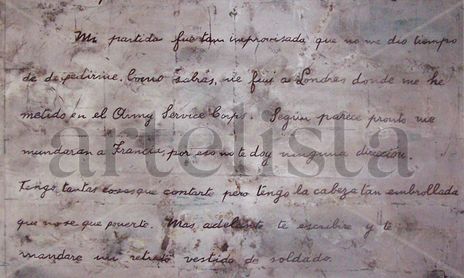 Mi partida fue tan improvisada que no me dio tiempo
de despedirme. Como sabrás, me fui a Londres donde me he
metido en el Army Service Corps. Según parece pronto me
mandaran a Francia, por eso no te doy ninguna dirección.
Tengo tantas cosas que contarte pero tengo la cabeza tan embrollada
que no se que ponerte. Mas adelante te escribire y te
mandare un retrato vestido de soldado.
artelista